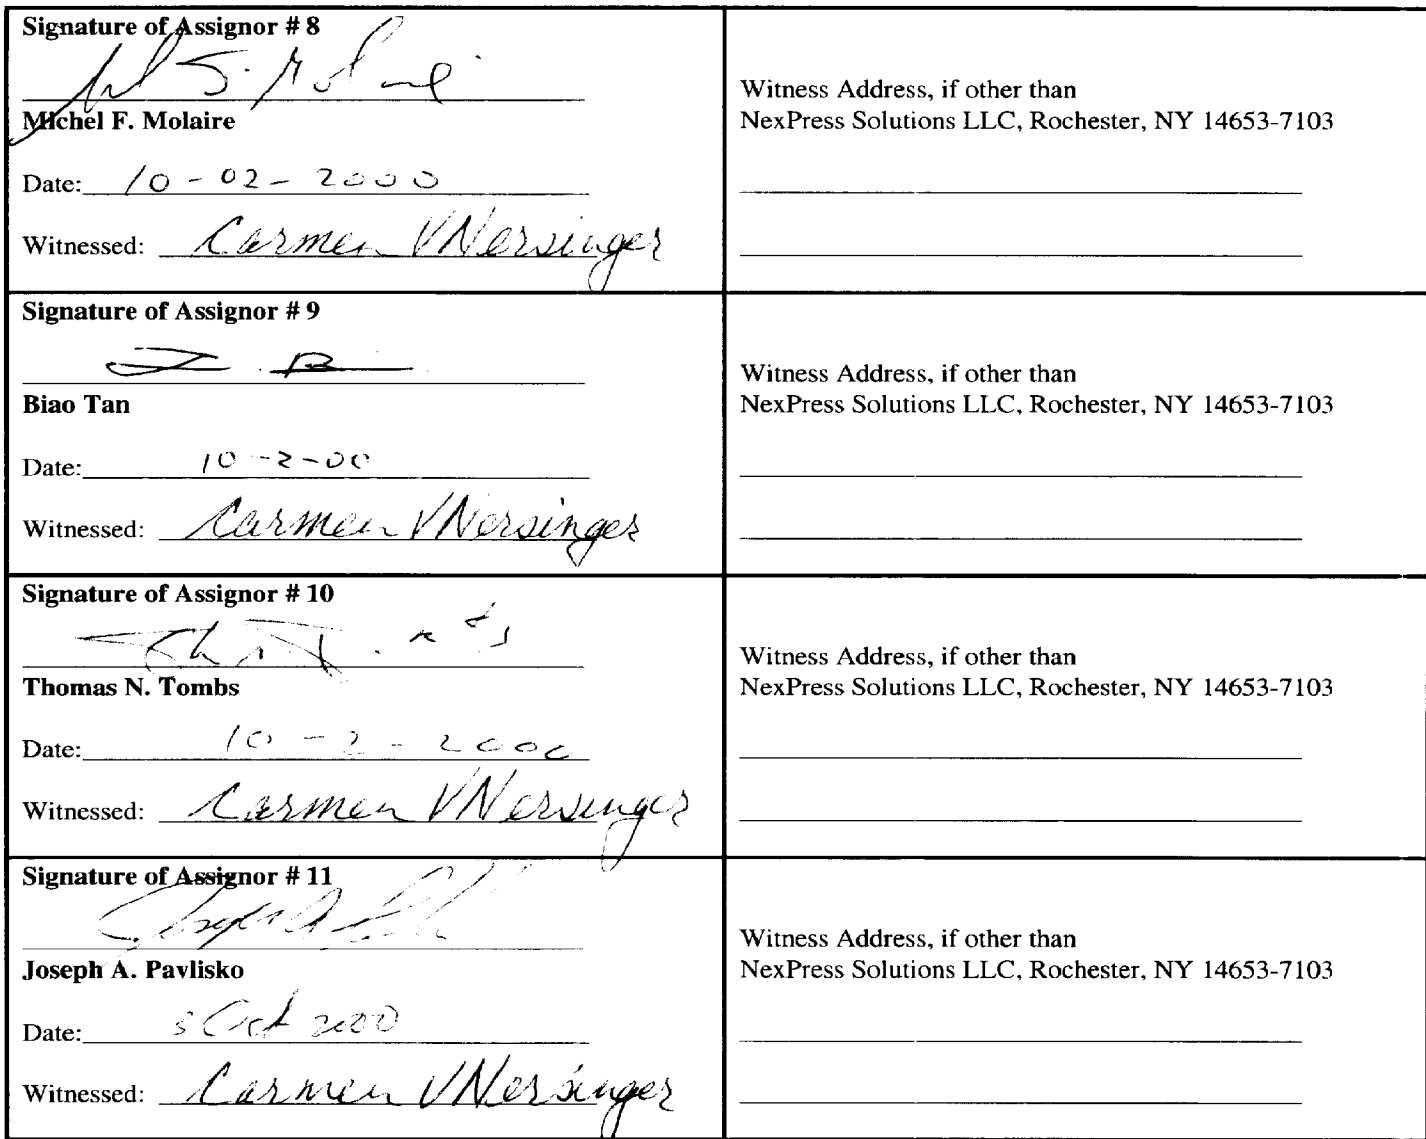 Signature of Assignor # 8
Michel F. Molaire
Date: 10-02-2000
Witnessed: Carmen V Nersinger
Witness Address, if other than
NexPress Solutions LLC, Rochester, NY 14653-7103
Signature of Assignor # 9
Biao Tan
Date: 10-2-00
Witnessed: Carmen V Nersinger
Witness Address, if other than
NexPress Solutions LLC, Rochester, NY 14653-7103
Signature of Assignor # 10
Thomas N. Tombs
Date: 10-2-2000
Witnessed: Carmen V Nersinger
Witness Address, if other than
NexPress Solutions LLC, Rochester, NY 14653-7103
Signature of Assignor # 11
Joseph A. Pavlisko
Date: 3 Oct 2000
Witnessed: Carmen V Nersinger
Witness Address, if other than
NexPress Solutions LLC, Rochester, NY 14653-7103